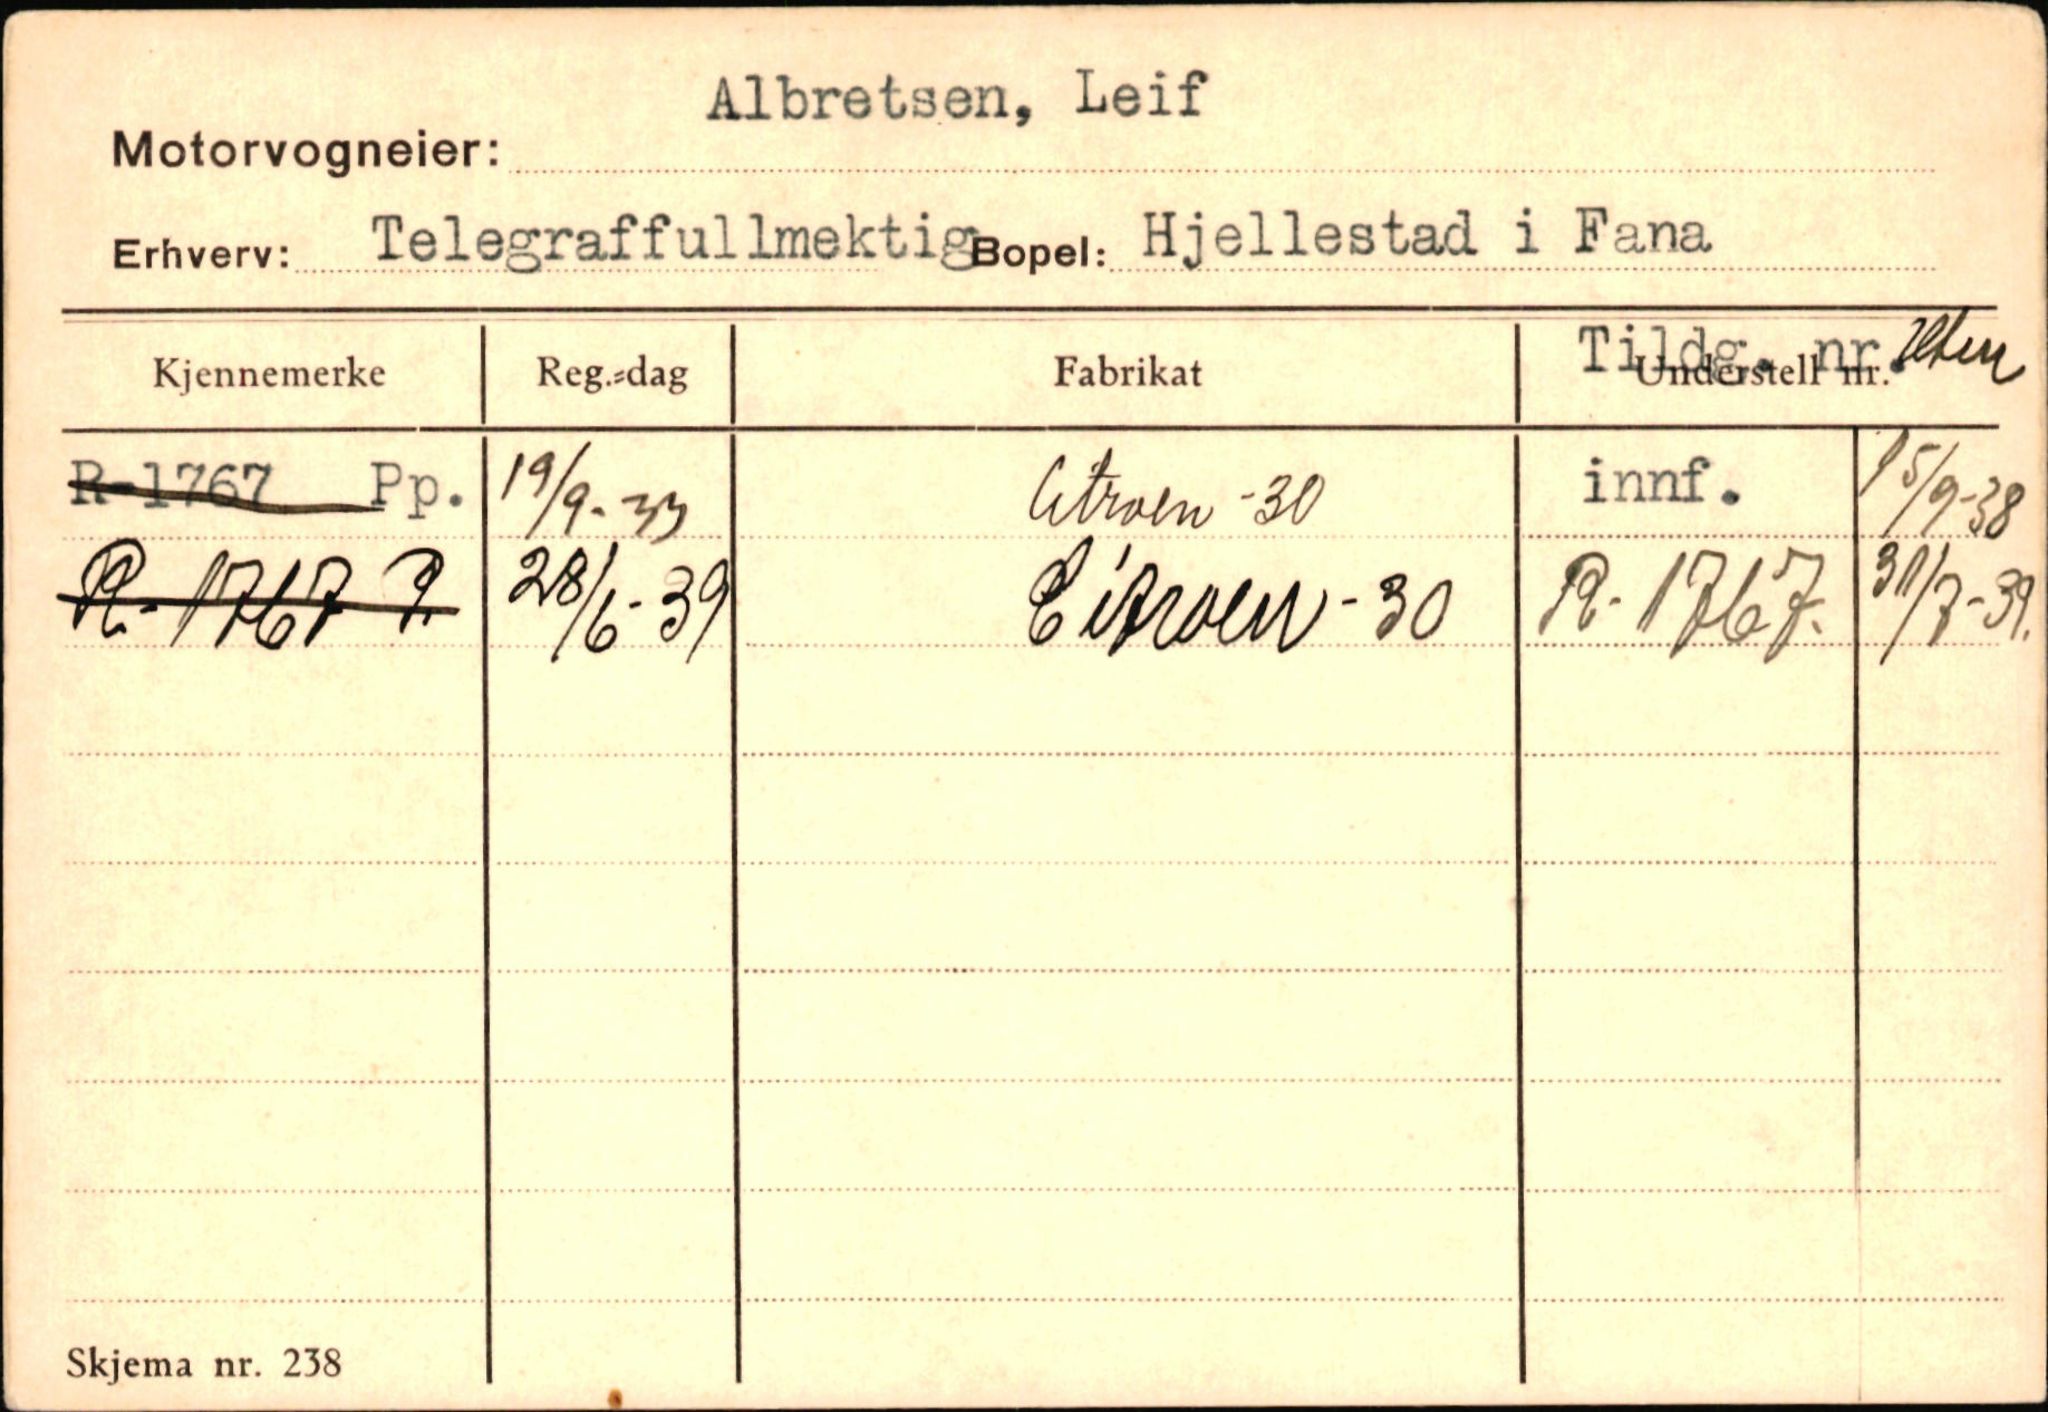 Albretsen, Leif
Motorvogneier:
Erhverv: Telegraffullmektig Bopel: Hjellestad i Fana
Kjennemerke Reg.-dag Fabrikat Tildg. nr. Understell nr.
R-1767 Pp. 19/9-33 Citroen -30 innf. 15/9-38
R-1767 P. 28/6-39 Citroen -30 R-1767. 31/7-39.
Skjema nr. 238